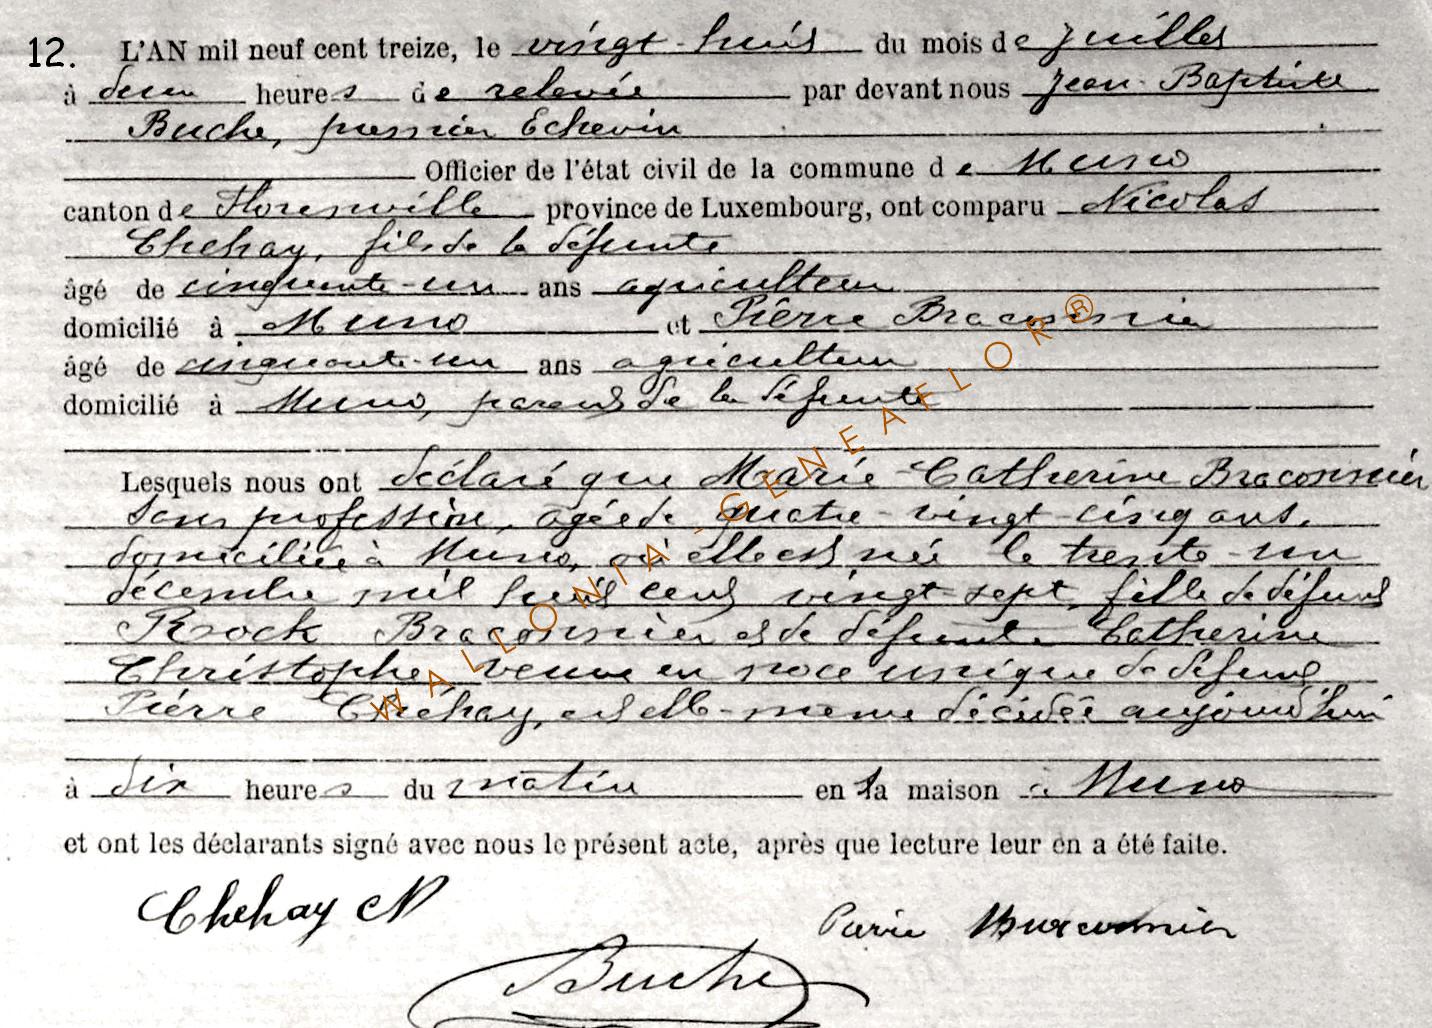 12. L'AN mil neuf cent treize, le vingt-huit du mois de juillet
à deux heures de relevée par devant nous Jean-Baptiste
Buche, premier Echevin
Officier de l'état civil de la commune de Muno
canton de Florenville province de Luxembourg, ont comparu Nicolas
Chehay, fils de la défunte
âgé de cinquante-un ans agriculteur
domicilié à Muno et Pierre Braconnier
âgé de cinquante-un ans agriculteur
domicilié à Muno, parent de la défunte
Lesquels nous ont déclaré que Marie Catherine Braconnier
sans profession, agée de quatre-vingt-cinq ans,
domiciliée à Muno, où elle est née le trente-un
décembre mil huit cent vingt-sept, fille de défunt
Rock Braconnier et de défunte Catherine
Christophe, veuve en noce unique de défunt
Pierre Chehay, est elle-même décédée aujourd'hui
à dix heures du matin en sa maison à Muno
et ont les déclarants signé avec nous le présent acte, après que lecture leur en a été faite.
Chehay N
Pierre Braconnier
Buche
WALLONIA-GENEAFLOR®